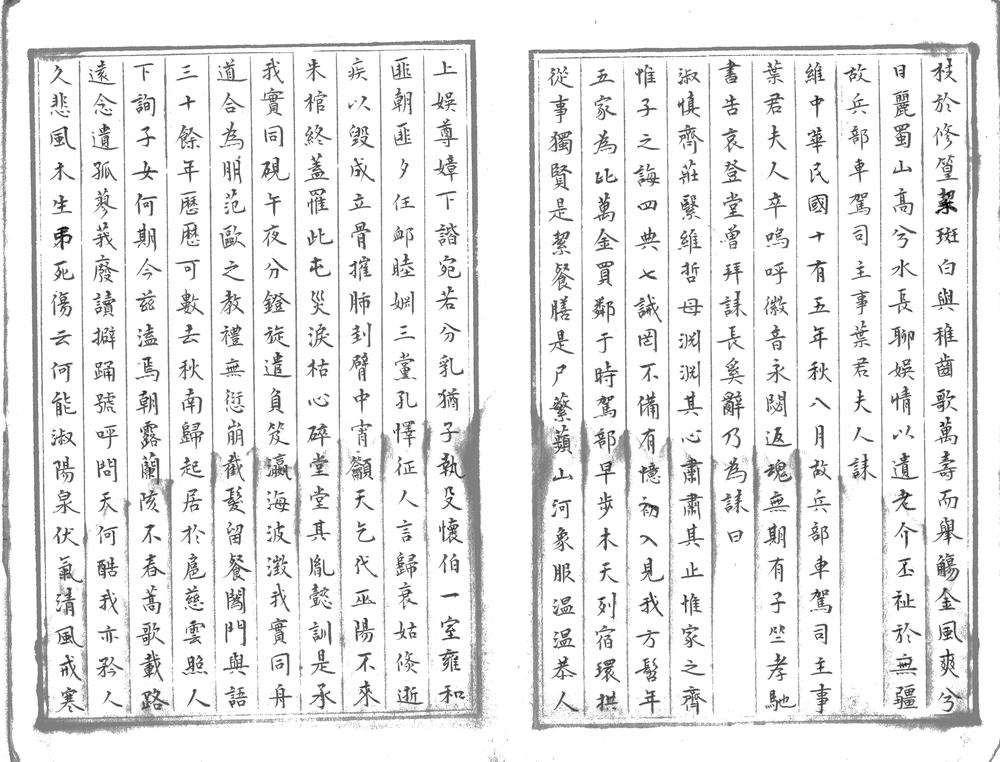 枝於修篁絜斑白與稚齒歌萬壽而舉觴金風爽兮
日麗蜀山高兮水長聊娛情以遺老介丕祉於無疆
故兵部車駕司主事葉君夫人誄
維中華民國十有五年秋八月故兵部車駕司主事
葉君夫人卒嗚呼徽音永閟返魂無期有子竺孝馳
書告哀登堂曾拜誄長奚辭乃為誄曰
淑慎齊莊繄維哲母淵淵其心肅肅其止惟家之齊
惟子之誨四典七誡罔不備有憶初入見我方髫年
五家為比萬金買鄰于時駕部早步木天列宿環拱
從事獨賢是絜餐膳是尸蘩蘋山河象服溫溫恭人
上娛尊嫜下諧宛若分乳猶子執殳懷伯一室雍和
匪朝匪夕任卹睦婣三黨孔懌征人言歸哀姑倏逝
疾以毀成立骨摧肺刲臂中宵籲天乞代巫陽不來
朱棺終蓋罹此屯災淚枯心碎堂堂其胤懿訓是承
我實同硯午夜分鐙旋遣負笈瀛海波澂我實同舟
道合為朋范歐之教禮無愆崩截髮留餐闔門與語
三十餘年歷歷可數去秋南歸起居於扈慈雲照人
下詢子女何期今茲溘焉朝露蘭陔不春蒿歌載路
遠念遺孤蓼莪廢讀擗踊號呼問天何酷我亦矜人
久悲風木生弔死傷云何能淑陽泉伏氣清風戒寒